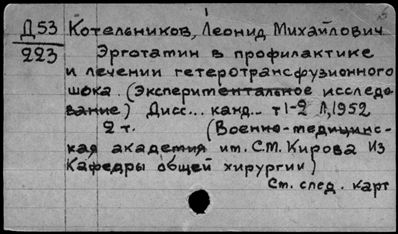 Д53 Котельников, Леонид Михайлович
223 Эрготатин в профилактике
и лечении гетеротрансфузионного
шока. (Экспериментальное исследо-
вание) Дисс... канд... т 1-2 Л, 1952
2 т. (Военно-медицинс-
кая академия им. С.М. Кирова Из
Кафедры общей хирургии)
Ст. след. карт